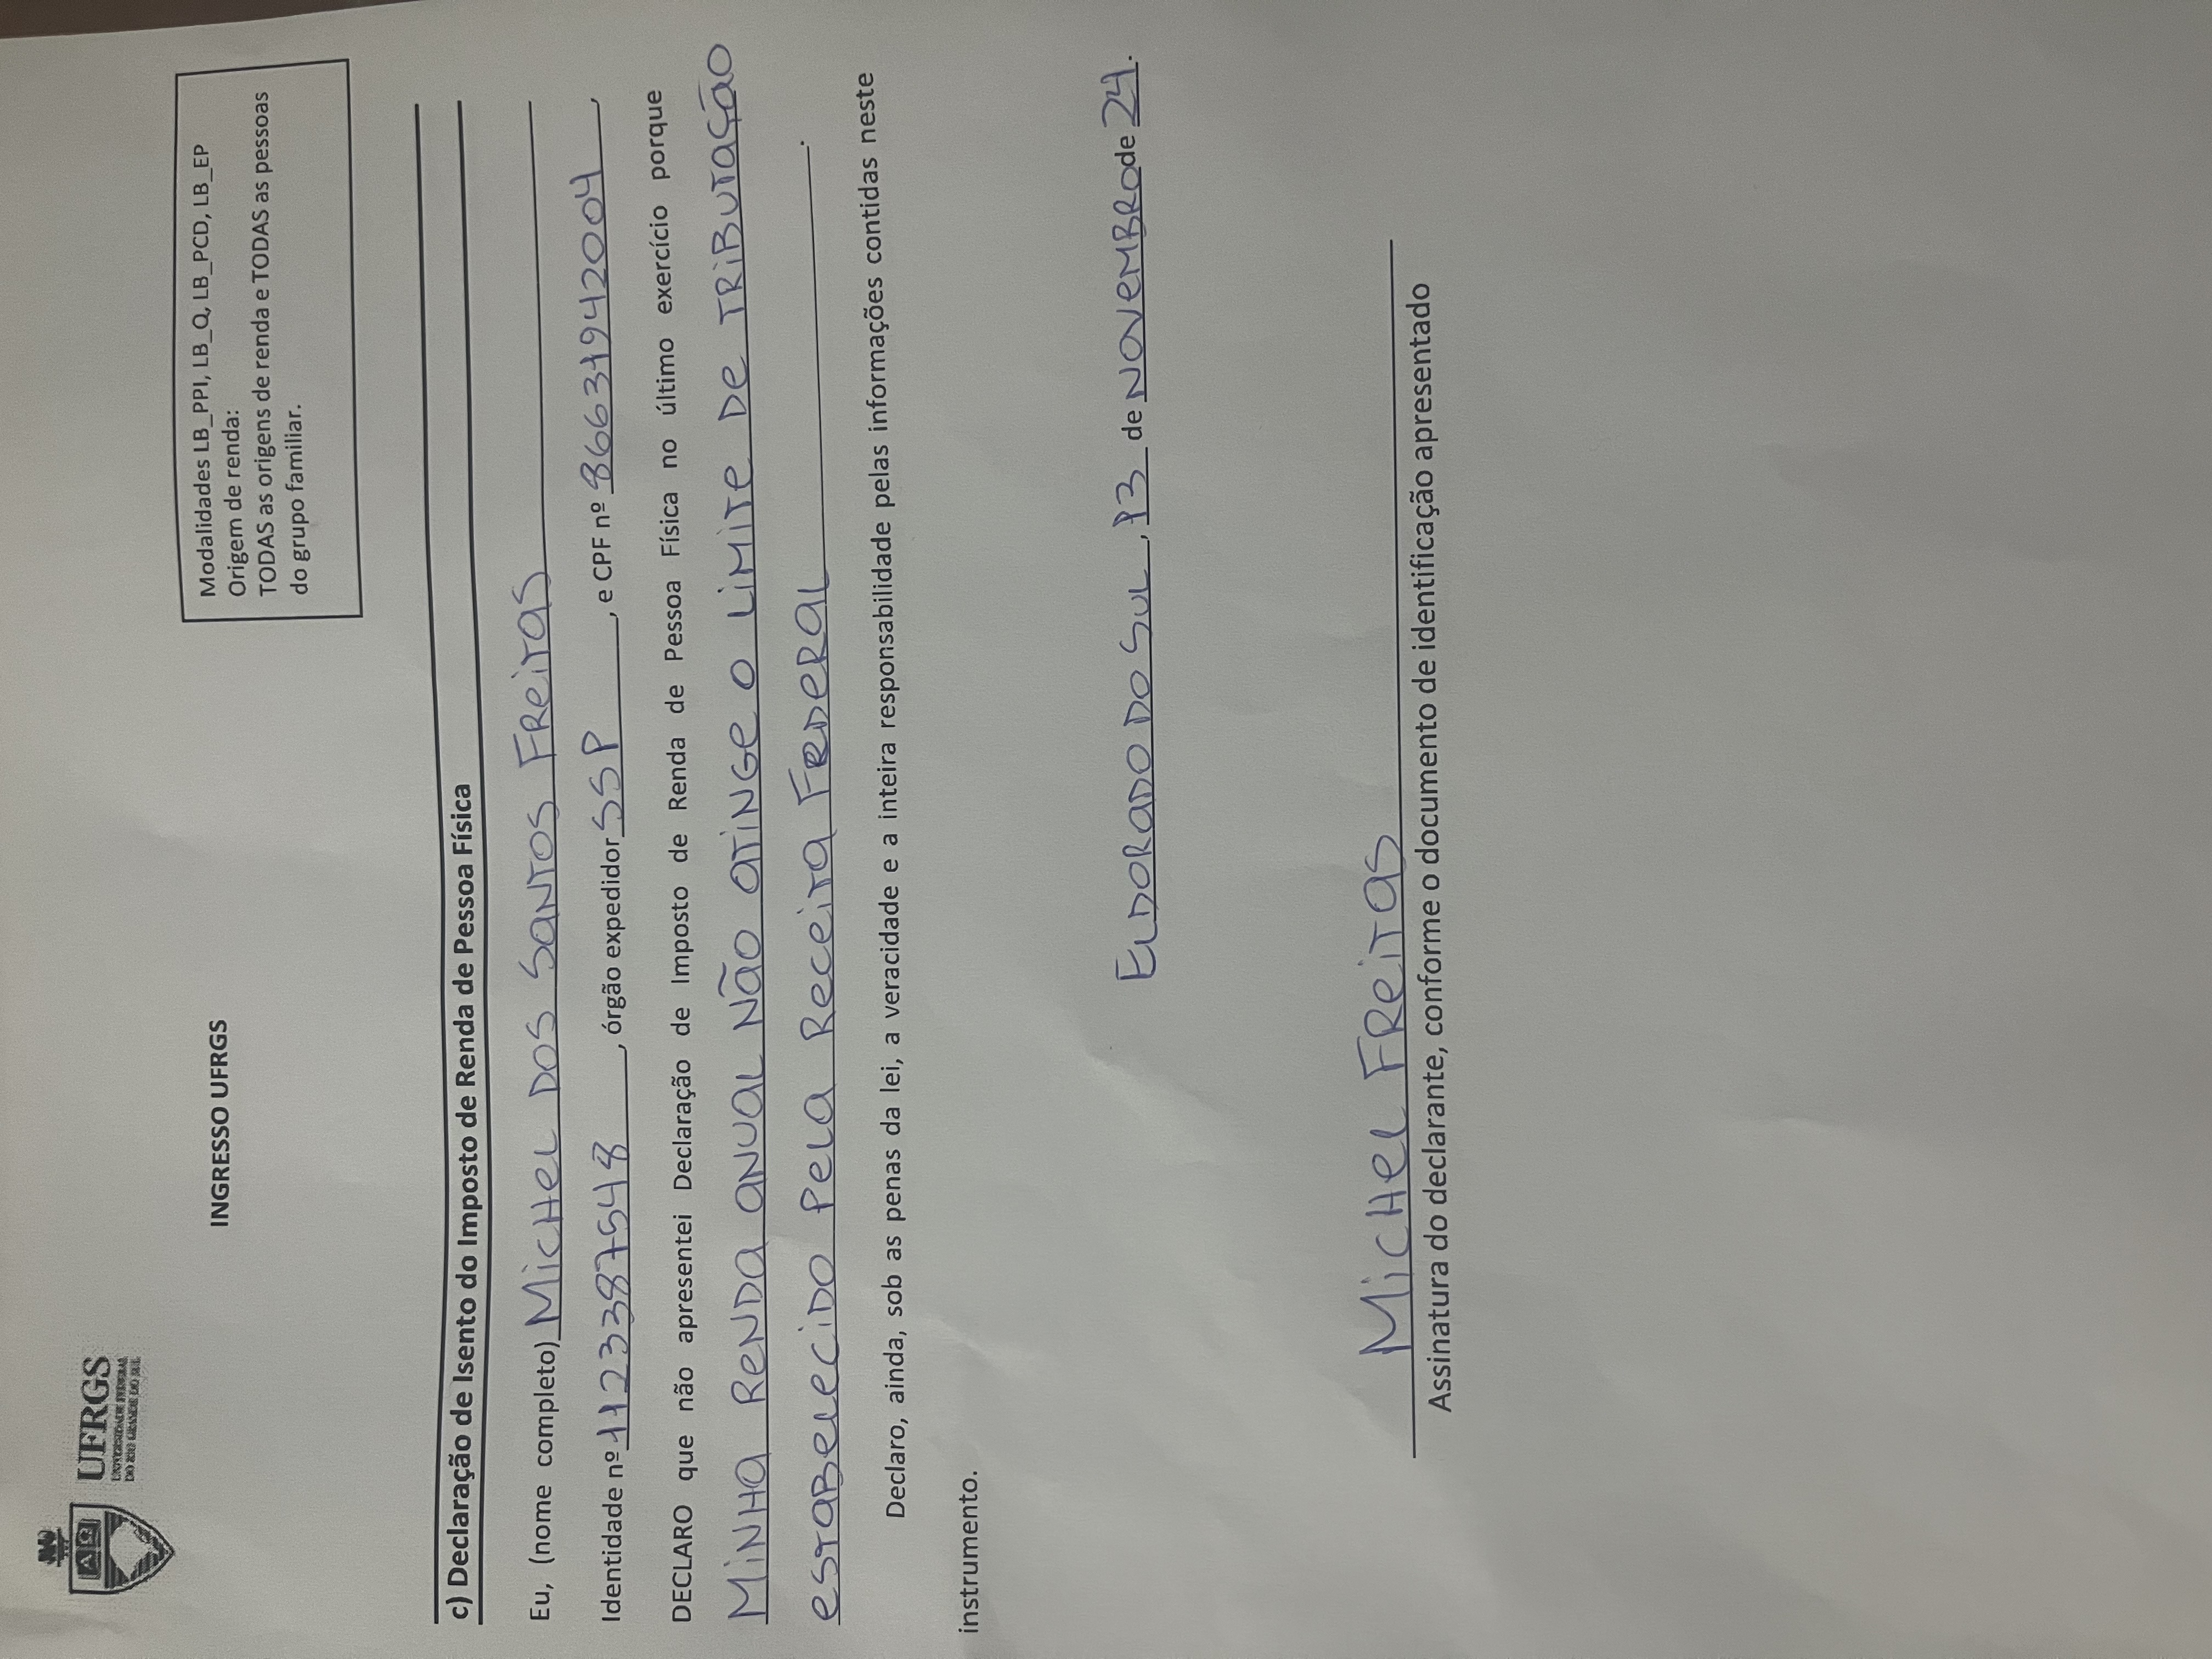 UFRGS
UNIVERSIDADE FEDERAL
DO RIO GRANDE DO SUL
INGRESSO UFRGS
Modalidades LB_PPI, LB_Q, LB_PCD, LB_EP
Origem de renda:
TODAS as origens de renda e TODAS as pessoas
do grupo familiar.
c) Declaração de Isento do Imposto de Renda de Pessoa Física
Eu, (nome completo) MicHel DOS SANTOS FReiTas
Identidade nº 1123387548, órgão expedidor SSP, e CPF nº 86631942004,
DECLARO que não apresentei Declaração de Imposto de Renda de Pessoa Física no último exercício porque
MiNHa ReNDa aNUaL Não aTiNGe o LiMiTe De TRiBUTação
esTaBeLeciDO PeLa Receita FeDeRaL.
Declaro, ainda, sob as penas da lei, a veracidade e a inteira responsabilidade pelas informações contidas neste
instrumento.
ELDORADO DO SUL, 13 de NOVeMBRO de 24.
MicHel FReiTas
Assinatura do declarante, conforme o documento de identificação apresentado